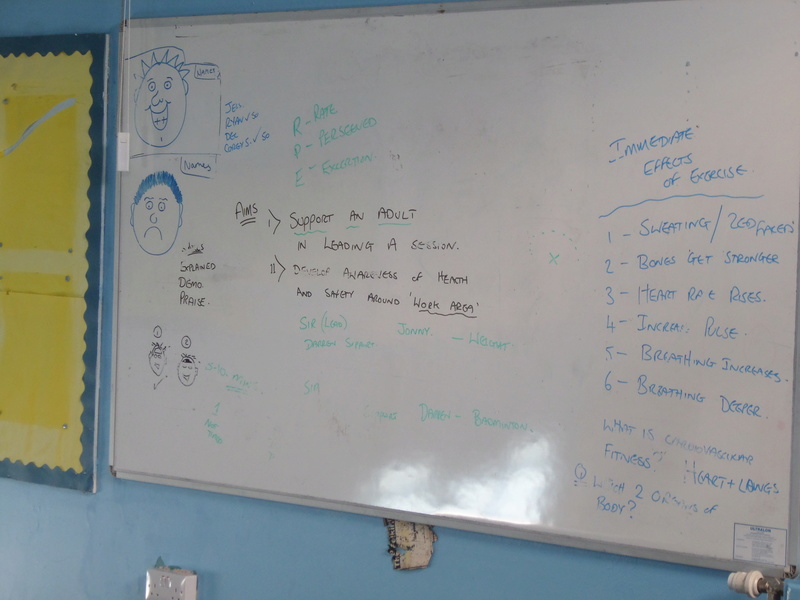 NAMES
JELL
RYAN ✓ SO
DEC
COREY S. ✓ SO
NAMES
R - RATE
P - PERSCEIVED
E - EXCERTION.
AIMS
I) SUPPORT AN ADULT
IN LEADING A SESSION.
II) DEVELOP AWARENESS OF HEALTH
AND SAFETY AROUND 'WORK AREA'
SIR (LEAD) JONNY.
DARREN
SIR
DARREN - BADMINTON.
EXPLAINED
DEMO.
PRAISE.
1
2
1
IMMEDIATE
EFFECTS
OF EXERCISE
1 - SWEATING / RED FACED
2 - BONES GET STRONGER
3 - HEART RATE RISES.
4 - INCREASE PULSE.
5 - BREATHING INCREASES.
6 - BREATHING DEEPER.
WHAT IS CARDIOVASCULAR
FITNESS? HEART + LUNGS
Q WHICH 2 ORGANS OF
BODY?